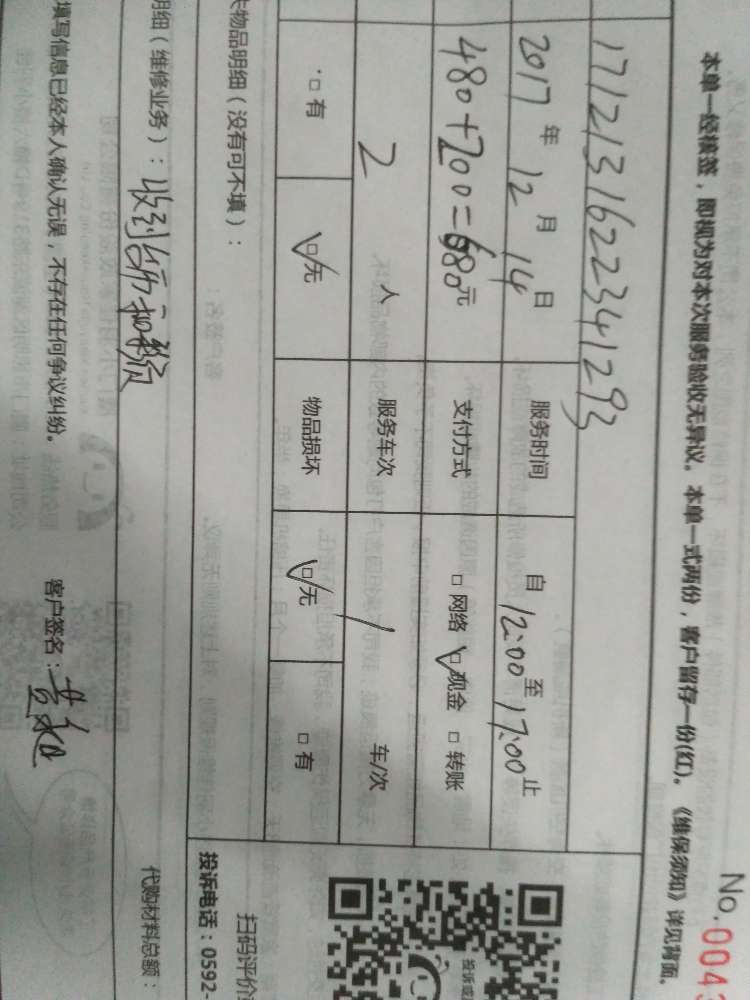 No.004
本单一经核签，即视为对本次服务验收无异议。本单一式两份，客户留存一份(红)。《维保须知》详见背面。
1712131622341293
2017年12月14日 服务时间 自12:00至17:00止
480+200=680元 支付方式 □网络 ☑现金 □转账
2人 服务车次 1 车/次
□有 ☑无 物品损坏 ☑无 □有
物品明细（没有可不填）：
扫码评价
投诉电话：0592-
明细（维修业务）：收到
代购材料总额：
填写信息已经本人确认无误，不存在任何争议纠纷。 客户签名：